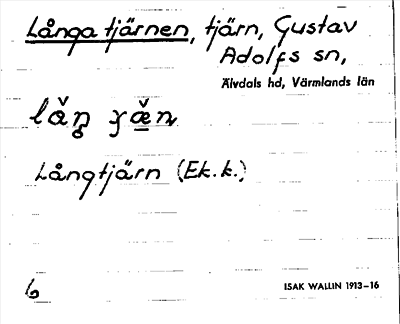 Långa tjärnen, tjärn, Gustav
Adolfs sn,
Älvdals hd, Värmlands län
Långtjärn (Ek.k.)
6
ISAK WALLIN 1913–16